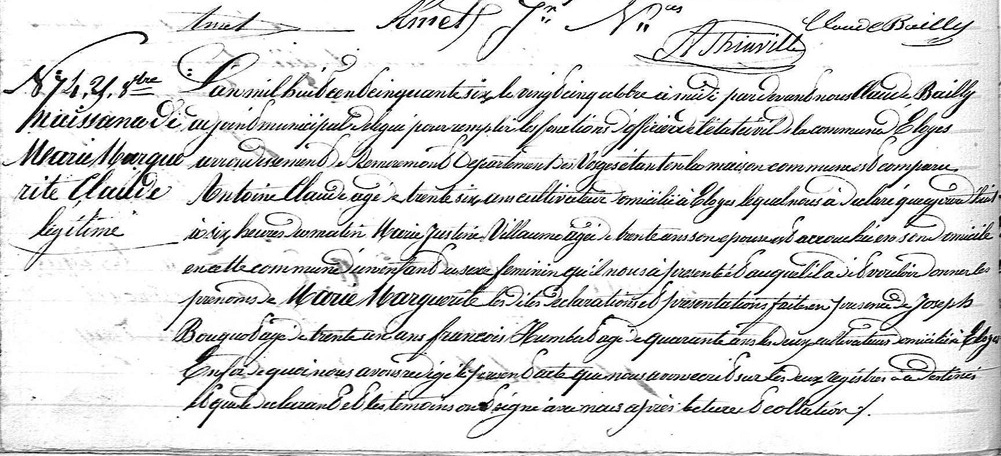 Amet Jn Nas
AThinville
Claude Bailly
N° 74. 25. 8bre
Naissance de
Marie Margue
rite Claude
légitime
L'an mil huit cent cinquante six, le vingt cinq octobre à midi pardevant nous Claude Bailly
adjoint municipal délégué pour remplir les fonctions d'officier de l'état civil de la commune d'Eloyes
arrondissement de Remiremont Département des Vosges étant en la maison commune est comparu
Antoine Claude agé de trente six ans cultivateur domicilié à Eloyes lequel nous a déclaré que
à six heures du matin Marie Justine Villaume agée de trente ans son epouse est accouchée en son domicile
en cette commune d'un enfant du sexe feminin qu'il nous à presenté et auquel il a dit vouloir donner les
prenoms de Marie Marguerite les dites declarations et presentations faites en presence de Joseph
Bouquot agé de trente un ans francois Humbert agé de quarante ans les deux cultivateurs domiciliés à Eloyes
En foi de quoi nous avons redigé le present acte que nous avons ecrit sur les deux registres à ce destinés
et que le declarant et les temoins ont signé avec nous après lecture et collation /.